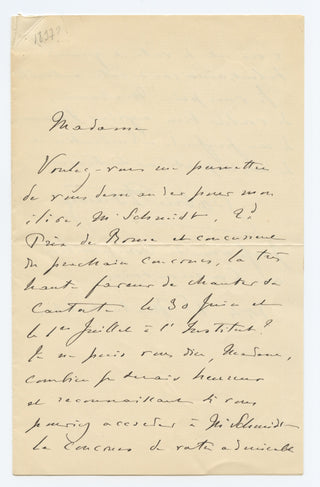 1897?
Madame
Voulez-vous me permettre
de vous demander pour mon
élève, Mr Schmidt, 2d
Prix de Rome et concurrent
du prochain concours, la très
haute faveur de chanter sa
Cantate le 30 Juin et
le 1er Juillet à l'Institut?
Je ne puis vous dire, Madame,
combien je serais heureux
et reconnaissant si vous
pouviez accorder à Mr Schmidt
le Concours de votre admirable